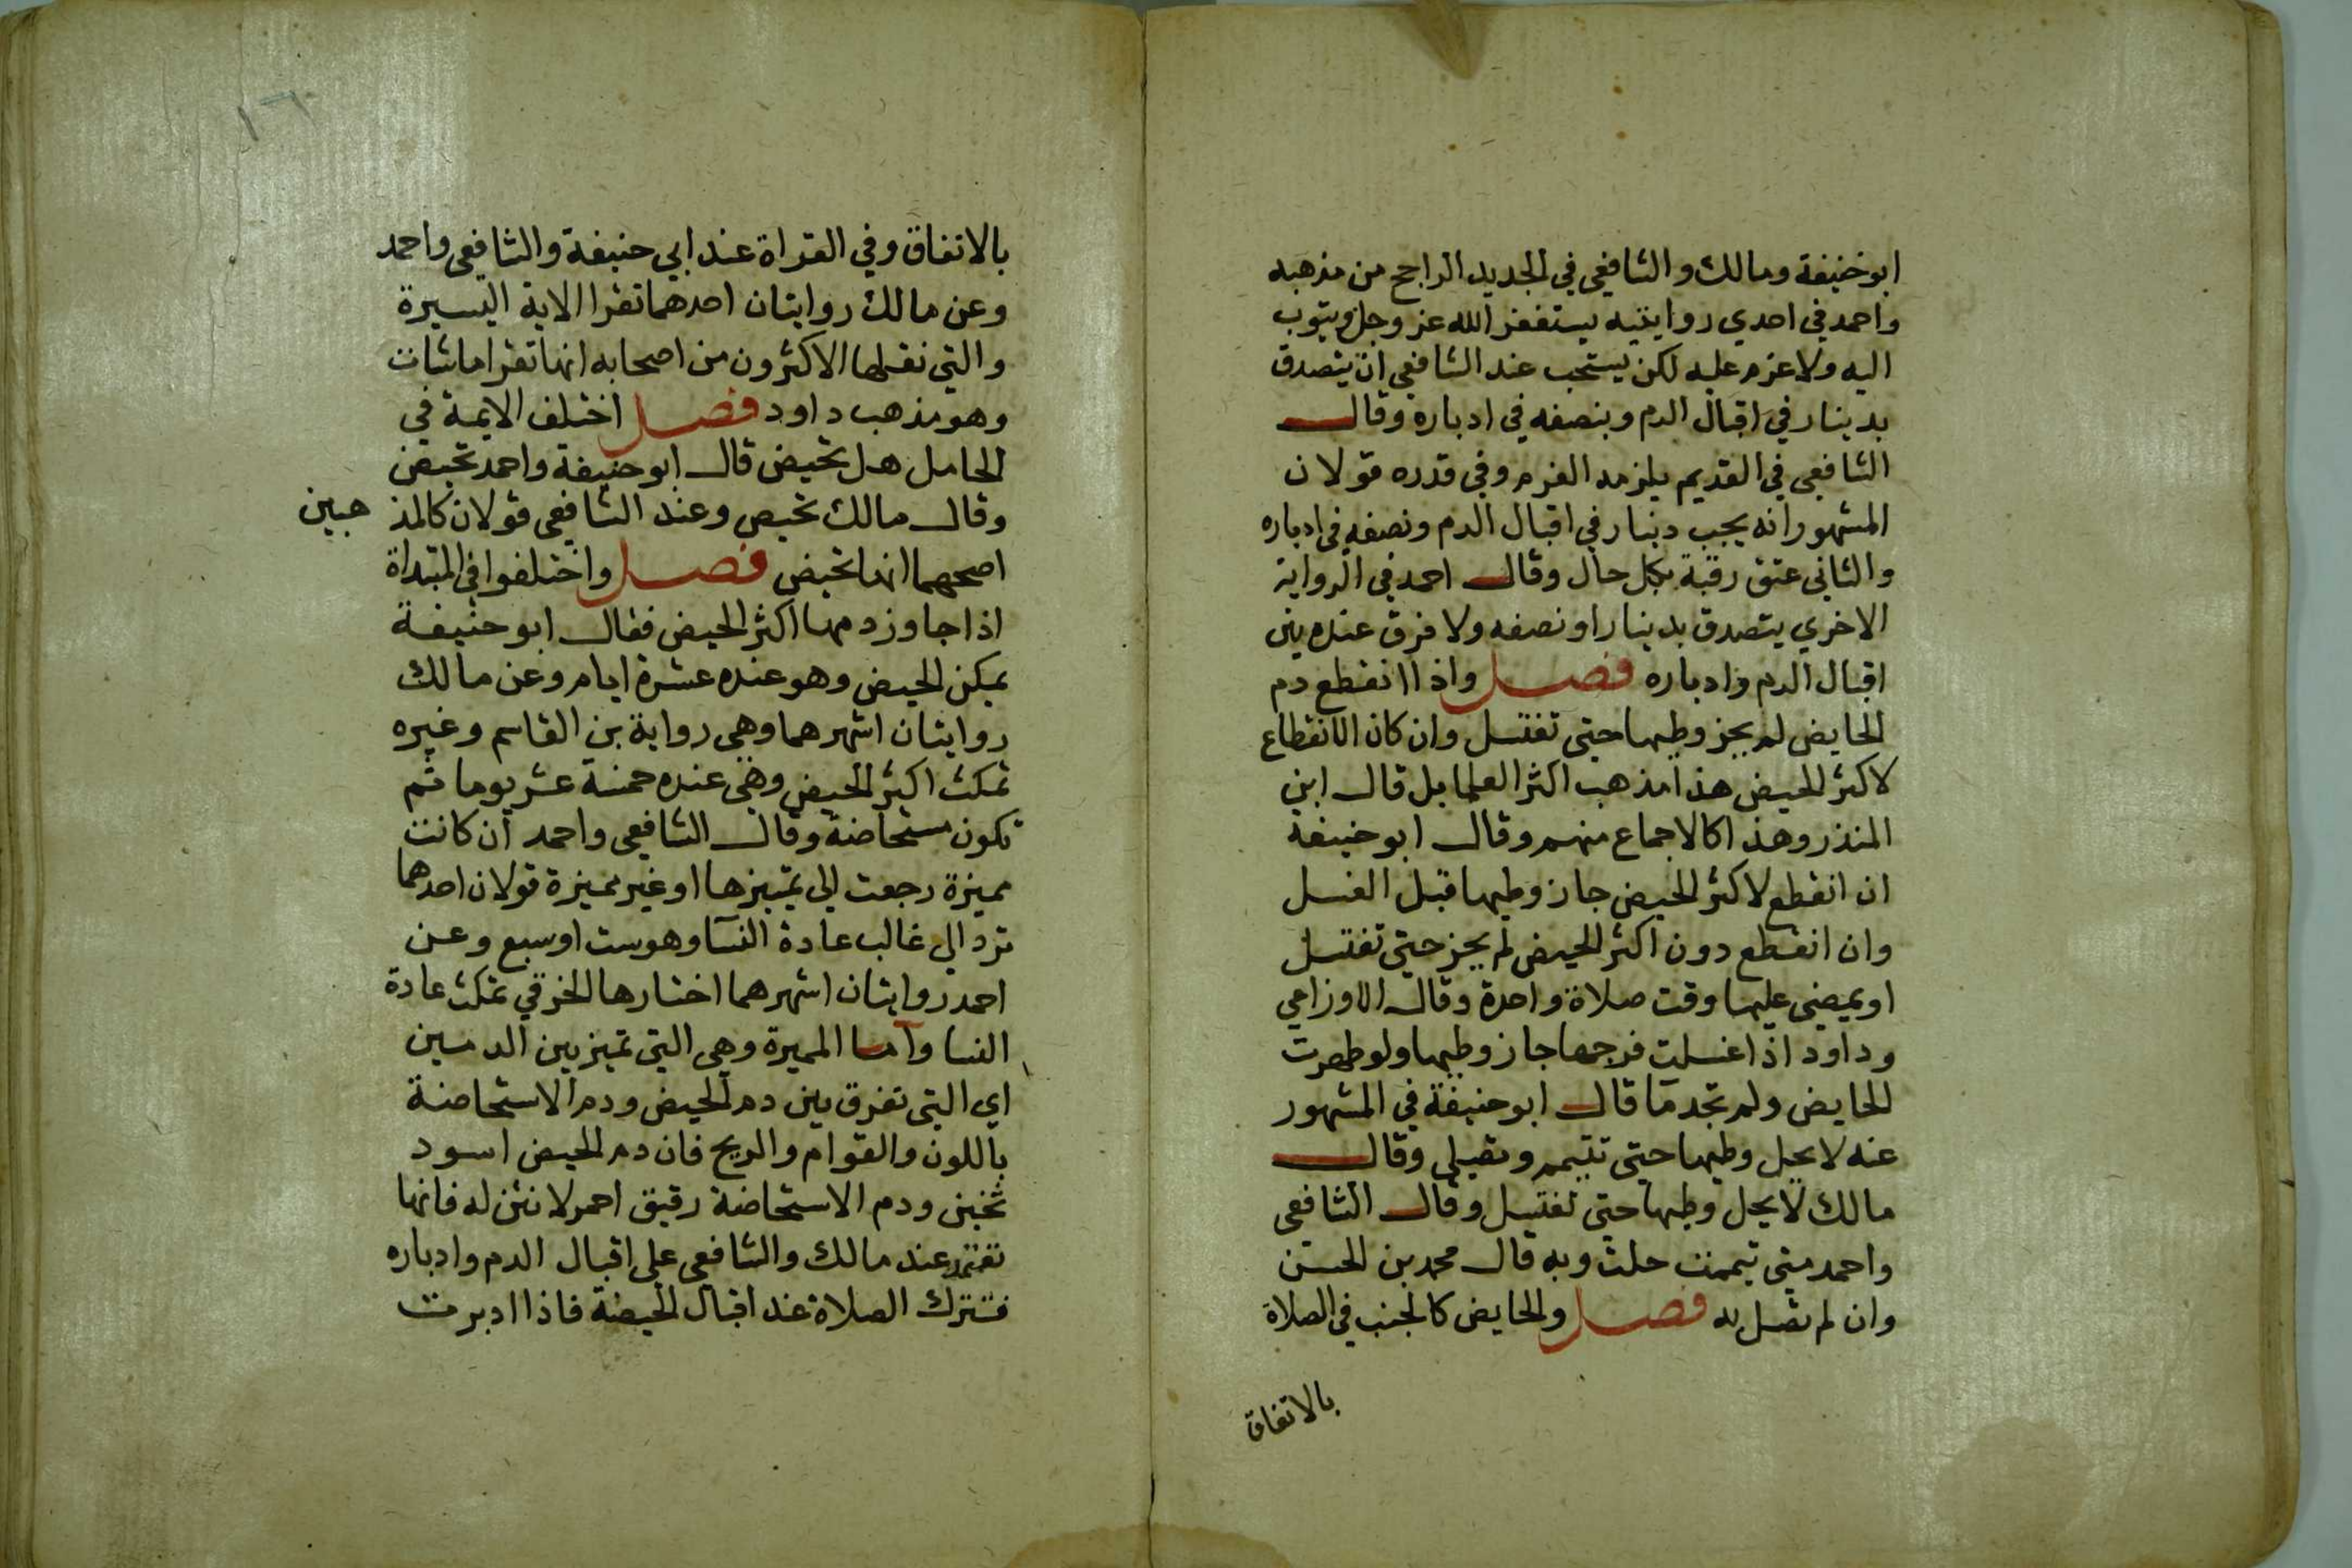 ابو حنيفة ومالك والشافعي في الجديد الراجح من مذهبه
واحمد في احدي روايتيه يستغفر الله عز وجل ويتوب
اليه ولا غرم عليه لكن يستحب عند الشافعي ان يتصدق
بدينار في اقبال الدم وبنصفه في ادباره وقال
الشافعي في القديم يلزمه الغرم وفي قدره قولان
المشهور انه يجب دينار في اقبال الدم ونصفه في ادباره
والثاني عتق رقبة بكل حال وقال احمد في الرواية
الاخري يتصدق بدينار او نصفه ولا فرق عنده بين
اقبال الدم وادباره فصل واذا انقطع دم
الحايض لم يجز وطيها حتي تغتسل وان كان الانقطاع
لاكثر الحيض هذا مذهب اكثر العلما بل قال ابن
المنذر وهذا كالاجماع منهم وقال ابو حنيفة
ان انقطع لاكثر الحيض جاز وطيها قبل الغسل
وان انقطع دون اكثر الحيض لم يجز حتي تغتسل
او يمضي عليها وقت صلاة واحدة وقال الاوزاعي
وداود اذا غسلت فرجها جاز وطيها ولو طهرت
الحايض ولم تجد ما قال ابو حنيفة في المشهور
عنه لا يحل وطيها حتي تتيمم وتصلي وقال
مالك لا يحل وطيها حتي تغتسل وقال الشافعي
واحمد متي تيممت حلت وبه قال محمد بن الحسن
وان لم تصل به فصل والحايض كالجنب في الصلاة
بالاتفاق
بالاتفاق وفي القراة عند ابي حنيفة والشافعي واحمد
وعن مالك روايتان احدهما تقرا الاية اليسيرة
والتي نقلها الاكثرون من اصحابه انها تقرا ما شات
وهو مذهب داود فصل اختلف الايمة في
الحامل هل تحيض قال ابو حنيفة واحمد تحيض
وقال مالك تحيض وعند الشافعي قولان كالمذ هبين
اصحهما انها تحيض فصل واختلفوا في المبتداة
اذا جاوز دمها اكثر الحيض فقال ابو حنيفة
يمكن الحيض وهو عنده عشرة ايام وعن مالك
روايتان اشهرهما وهي رواية بن القاسم وغيره
تمكث اكثر الحيض وهي عنده خمسة عشر يوما ثم
تكون مستحاضة وقال الشافعي واحمد ان كانت
مميزة رجعت الي تمييزها او غير مميزة قولان احدهما
ترد الي غالب عادة النسا وهو ست او سبع وعن
احمد روايتان اشهرهما اختارها الخرقي تمكث عادة
النسا واما المميزة وهي التي تميز بين الدمين
اي التي تفرق بين دم الحيض ودم الاستحاضة
باللون والقوام والريح فان دم الحيض اسود
ثخين ودم الاستحاضة رقيق احمر لا نتن له فانها
تعتمد عند مالك والشافعي علي اقبال الدم وادباره
فتترك الصلاة عند اقبال الحيضة فاذا ادبرت